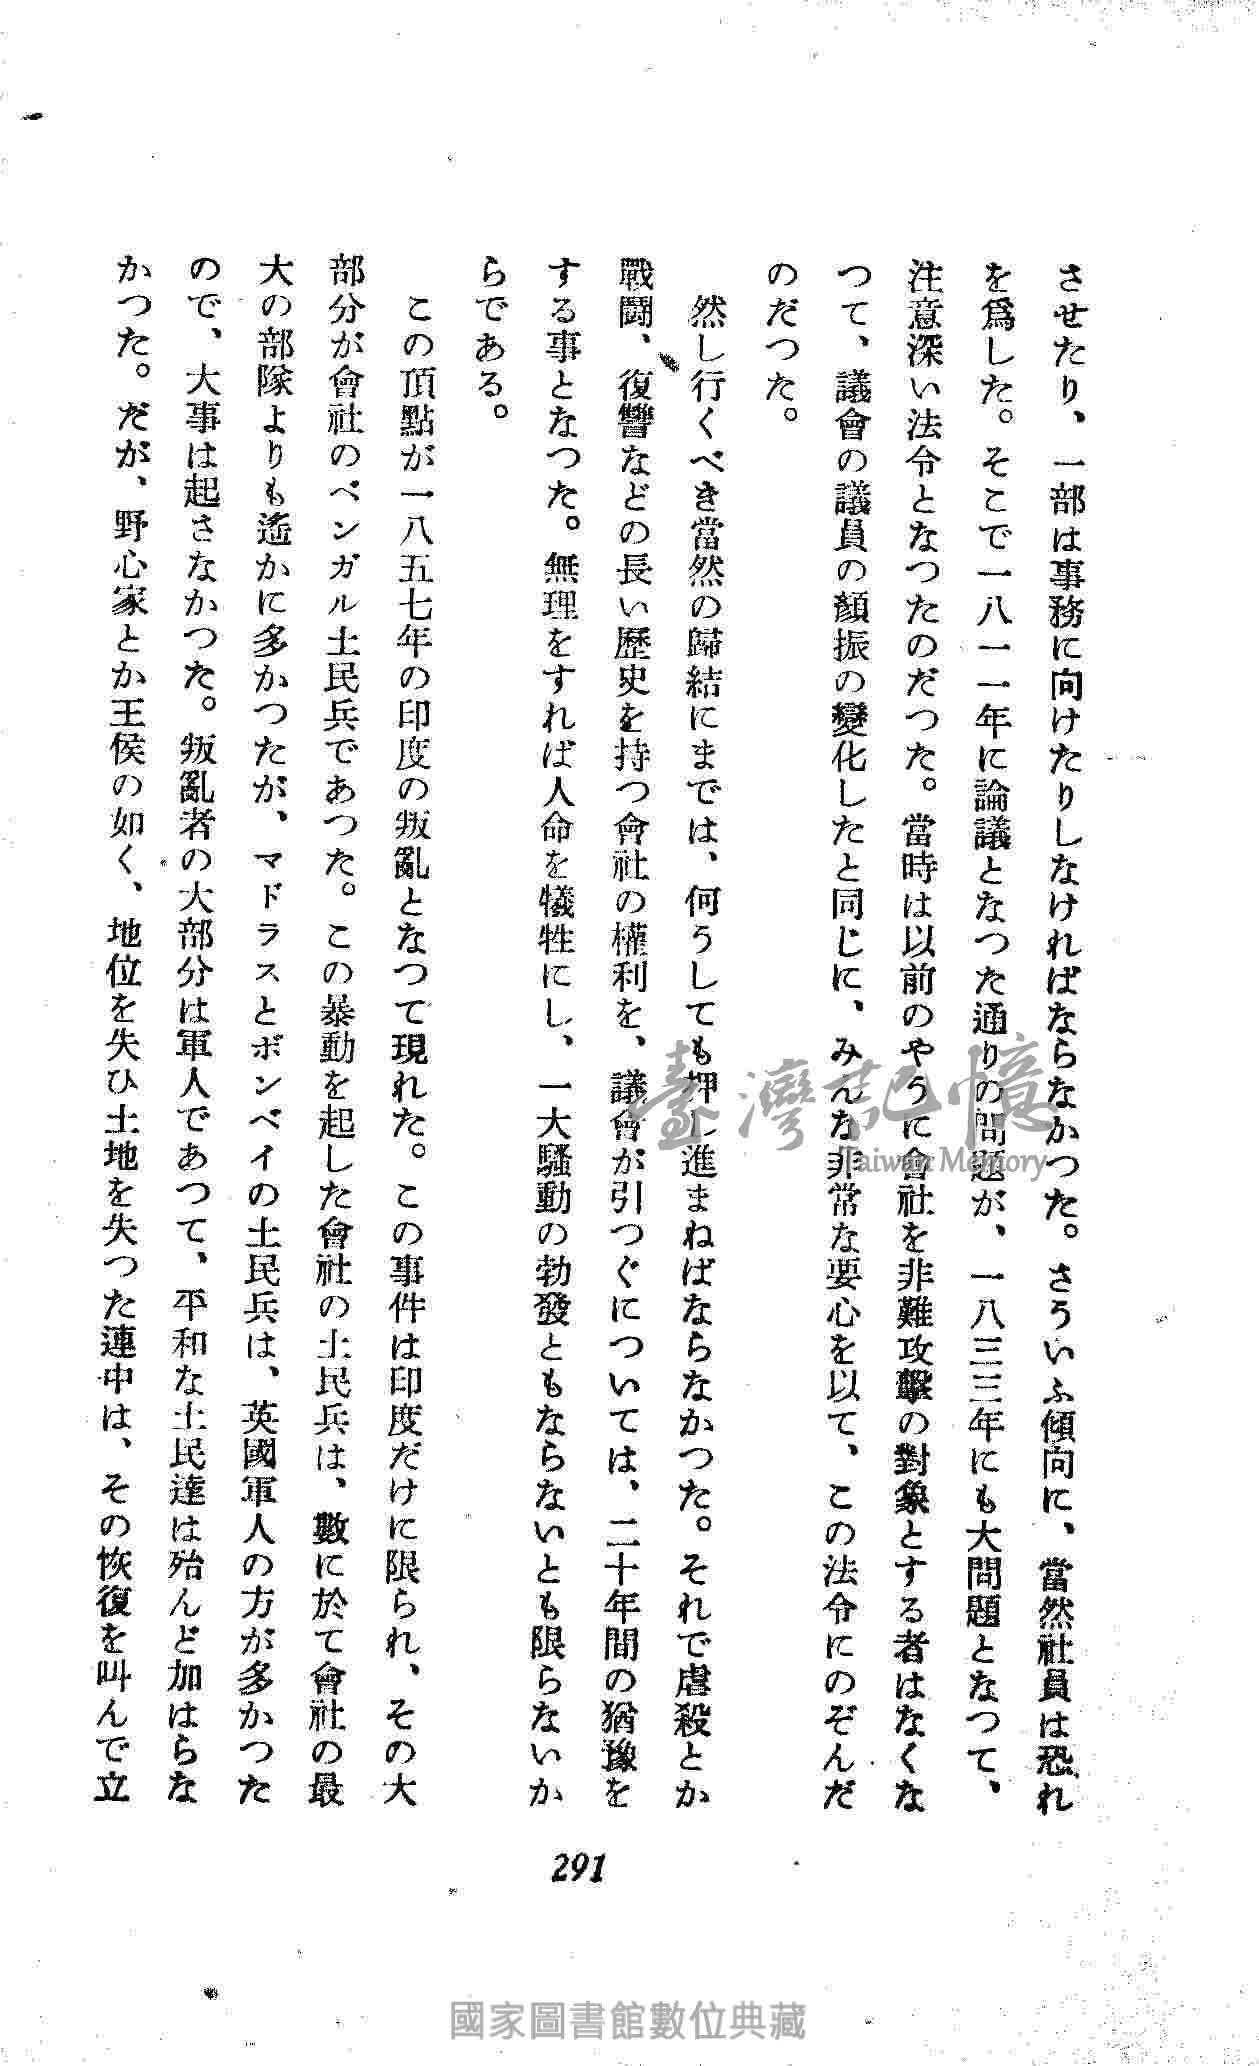 させたり、一部は事務に向けたりしなければならなかつた。さういふ傾向に、當然社員は恐れ
を爲した。そこで一八一一年に論議となつた通りの問題が、一八三三年にも大問題となつて、
注意深い法令となつたのだつた。當時は以前のやうに會社を非難攻擊の對象とする者はなくな
つて、議會の議員の顏振の變化したと同じに、みんな非常な要心を以て、この法令にのぞんだ
のだつた。
然し行くべき當然の歸結にまでは、何うしても押し進まねばならなかつた。それで虐殺とか
戰鬪、復讐などの長い歷史を持つ會社の權利を、議會が引つぐについては、二十年間の猶豫を
する事となつた。無理をすれば人命を犧牲にし、一大騷動の勃發ともならないとも限らないか
らである。
この頂點が一八五七年の印度の叛亂となつて現れた。この事件は印度だけに限られ、その大
部分が會社のベンガル土民兵であつた。この暴動を起した會社の土民兵は、數に於て會社の最
大の部隊よりも遙かに多かつたが、マドラスとボンベイの土民兵は、英國軍人の方が多かつた
ので、大事は起さなかつた。叛亂者の大部分は軍人であつて、平和な土民達は殆んど加はらな
かつた。だが、野心家とか王侯の如く、地位を失ひ土地を失つた連中は、その恢復を叫んで立
291
臺灣記憶
Taiwan Memory
國家圖書館數位典藏